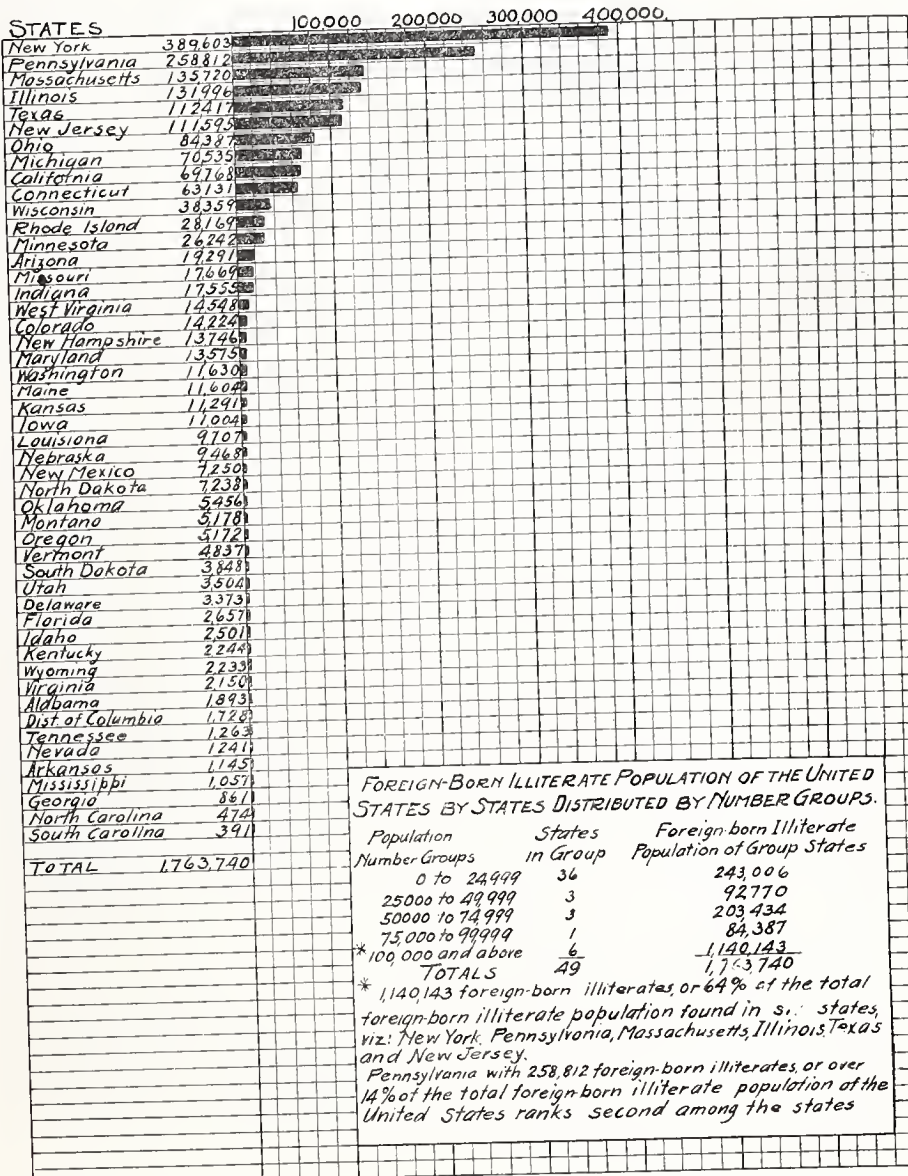 100000 200,000 300,000 400,000
STATES
New York 389,603
Pennsylvania 258812
Massachusetts 135720
Illinois 131996
Texas 112417
New Jersey 111,595
Ohio 84387
Michigan 70,535
California 69,768
Connecticut 63131
Wisconsin 38,359
Rhode Island 28,169
Minnesota 26,242
Arizona 19,291
Missouri 17,669
Indiana 17,555
West Virginia 14,548
Colorado 14,224
New Hampshire 13,746
Maryland 13,575
Washington 11,630
Maine 11,604
Kansas 11,291
Iowa 11,004
Louisiona 9,707
Nebraska 9,468
New Mexico 7,250
North Dakota 7,238
Oklahoma 5,456
Montano 5,178
Oregon 5,172
Vermont 4,837
South Dakota 3,848
Utah 3,504
Delaware 3,373
Florida 2,657
Idaho 2,501
Kentucky 2,244
Wyoming 2,233
Virginia 2,150
Alabama 1,893
Dist. of Columbia 1,728
Tennessee 1,263
Nevada 1241
Arkansos 1,145
Mississippi 1,057
Georgio 861
North Carolina 474
South Carolina 391
TOTAL 1,763,740
FOREIGN-BORN ILLITERATE POPULATION OF THE UNITED
STATES BY STATES DISTRIBUTED BY NUMBER GROUPS.
Population States Foreign-born Illiterate
Number Groups in Group Population of Group States
0 to 24,999 36 243,006
25000 to 49,999 3 92770
50000 to 74,999 3 203,434
75,000 to 99,999 1 84,387
*100,000 and above 6 1,140,143
TOTALS 49 1,763,740
* 1,140,143 foreign-born illiterates, or 64% of the total
foreign-born illiterate population found in states,
viz: New York, Pennsylvania, Massachusetts, Illinois, Texas
and New Jersey.
Pennsylvania with 258,812 foreign-born illiterates, or over
14% of the total foreign-born illiterate population of the
United States ranks second among the states